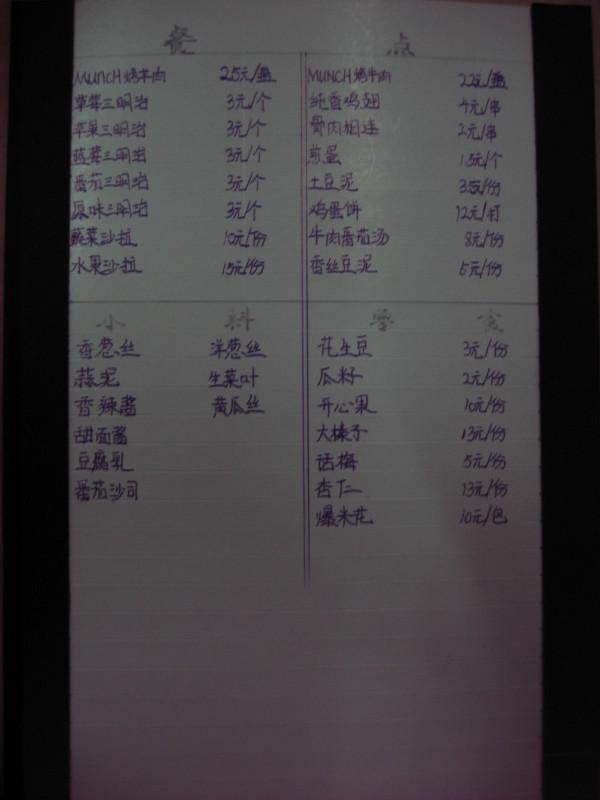 餐 点
MUNCH烤羊肉 25元/盘
草莓三明治 3元/个
苹果三明治 3元/个
蓝莓三明治 3元/个
番茄三明治 3元/个
原味三明治 3元/个
蔬菜沙拉 10元/份
水果沙拉 15元/份
MUNCH烤牛肉 22元/盘
纯香鸡翅 4元/串
骨肉相连 2元/串
煎蛋 1.5元/个
土豆泥 3.5元/份
鸡蛋饼 12元/打
牛肉番茄汤 8元/份
香丝豆泥 5元/份
小 料
香葱丝 洋葱丝
蒜泥 生菜叶
香辣酱 黄瓜丝
甜面酱
豆腐乳
番茄沙司
零 食
花生豆 3元/份
瓜籽 2元/份
开心果 10元/份
大榛子 13元/份
话梅 5元/份
杏仁 13元/份
爆米花 10元/包